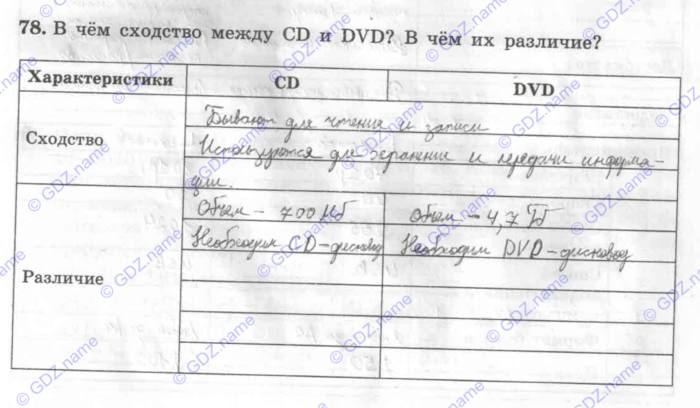 78. В чём сходство между CD и DVD? В чём их различие?
Характеристики CD DVD
Сходство
Бывают для чтения и записи
Используются для хранения и передачи информа-
ции.
Различие
Объём – 700 Мб Объём – 4,7 Гб
Необходим CD-дисковод Необходим DVD-дисковод
© GDZ.name